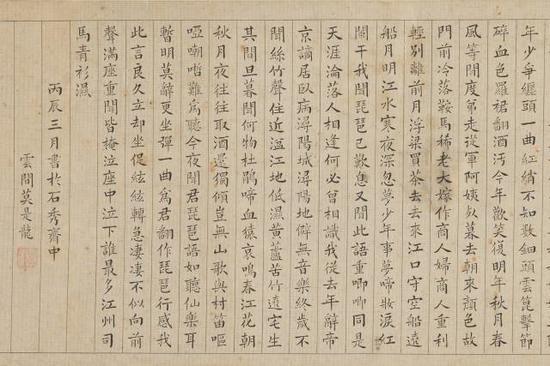 年少爭纏頭一曲紅綃不知數鈿頭雲篦擊節
碎血色羅裙翻酒污今年歡笑復明年秋月春
風等閒度弟走從軍阿姨死暮去朝來顏色故
門前冷落鞍馬稀老大嫁作商人婦商人重利
輕別離前月浮梁買茶去去來江口守空船遶
船月明江水寒夜深忽夢少年事夢啼妝淚紅
闌干我聞琵琶已歎息又聞此語重唧唧同是
天涯淪落人相逢何必曾相識我從去年辭帝
京謫居臥病潯陽城潯陽地僻無音樂終歲不
聞絲竹聲住近湓江地低濕黃蘆苦竹遶宅生
其間旦暮聞何物杜鵑啼血猿哀鳴春江花朝
秋月夜往往取酒還獨傾豈無山歌與村笛嘔
啞嘲哳難為聽今夜聞君琵琶語如聽仙樂耳
暫明莫辭更坐彈一曲為君翻作琵琶行感我
此言良久立却坐促絃絃轉急凄凄不似向前
聲滿座重聞皆掩泣座中泣下誰最多江州司
馬青衫濕
丙辰三月書於石秀齋中
雲間莫是龍